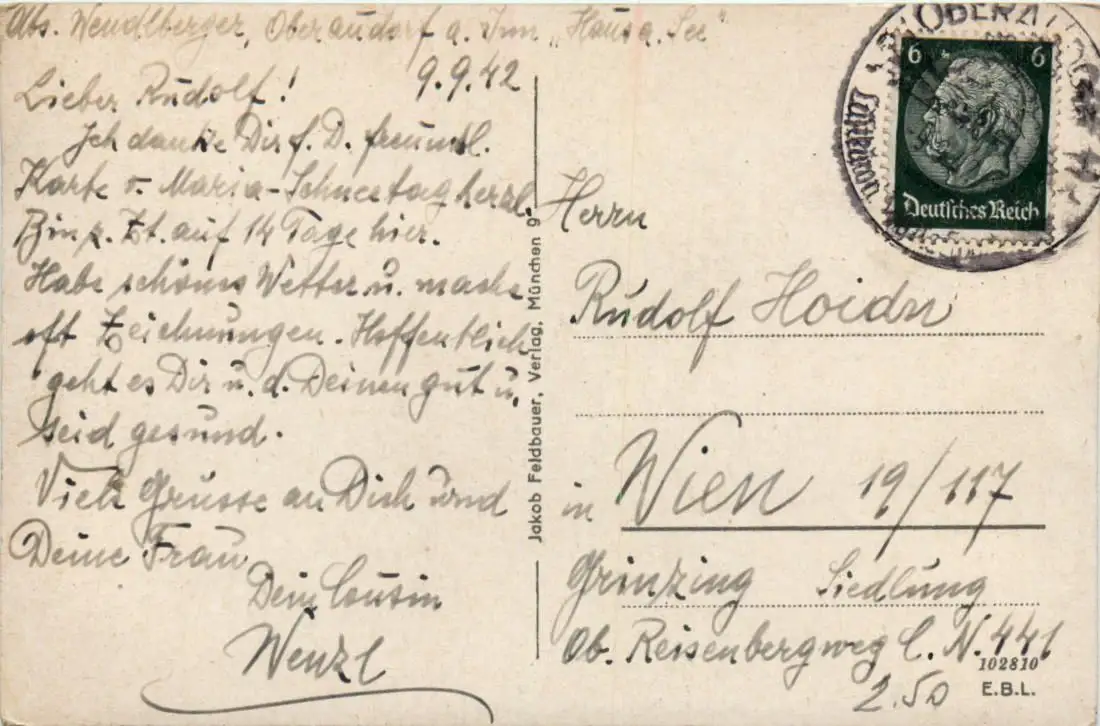 Abs. Wendlberger, Oberaudorf a. Inn „Haus a. See"
9.9.42
Lieber Rudolf!
Ich danke Dir f. D. freundl.
Karte v. Maria-Schneetag herzl.
Bin z. Zt. auf 14 Tage hier.
Habe schönes Wetter u. mache
oft Zeichnungen. Hoffentlich
geht es Dir u. d. Deinen gut u.
seid gesund.
Viele Grüsse an Dich und
Deine Frau
Dein Cousin
Wenzl
Jakob Feldbauer, Verlag, München 9
OBERAUDORF
6 6
Deutsches Reich
Herrn
Rudolf Hoidn
in Wien 19/117
Grinzing Siedlung
Ob. Reisenbergweg C. N. 441
102810
E.B.L.
2.50